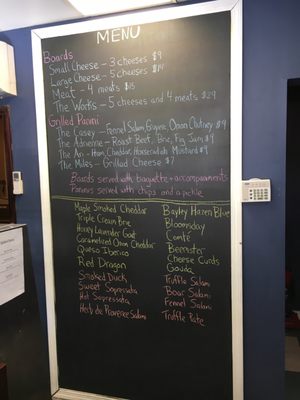 MENU
Boards
Small Cheese - 3 cheeses $9
Large Cheese - 5 cheeses $14
Meat - 4 meats $15
The Works - 5 cheeses and 4 meats $29
Grilled Panini
The Casey - Fennel Salami, Gruyere, Onion Chutney $9
The Adrienne - Roast Beef, Brie, Fig Jam $9
The Ari - Ham, Cheddar, Horseradish Mustard $9
The Miles - Grilled Cheese $7
Boards served with baguette + accompaniments
Paninis served with chips and a pickle
Maple Smoked Cheddar
Triple Cream Brie
Honey Lavender Goat
Caramelized Onion Cheddar
Queso Iberico
Red Dragon
Smoked Duck
Sweet Sopressata
Hot Sopressata
Herb de Provence Salami
Bayley Hazen Blue
Bloomsday
Comté
Beemster
Cheese Curds
Gouda
Truffle Salami
Boar Salami
Fennel Salami
Truffle Pate